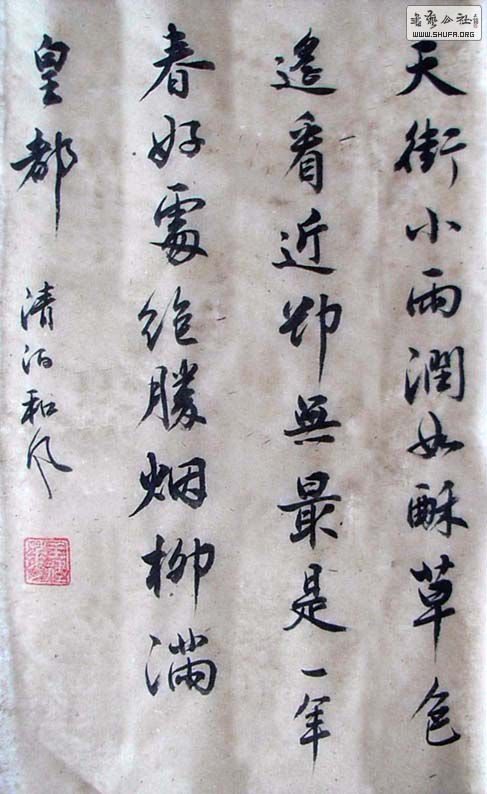 天街小雨潤如酥草色
遙看近却無最是一年
春好處絶勝烟柳滿
皇都
清泊和风
書藝公社
WWW.SHUFA.ORG